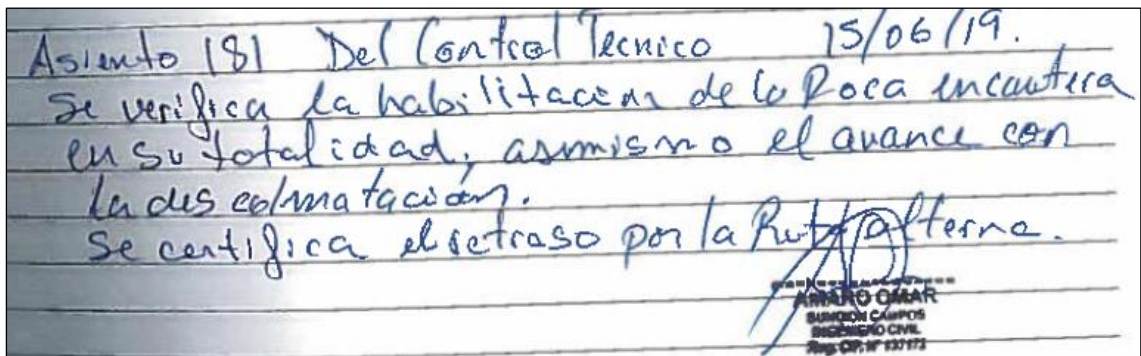 Asiento 181 Del Control Tecnico 15/06/19.
Se verifica la habilitación de la Roca en cantera
en su totalidad, asimismo el avance con
la descolmatación.
Se certifica el retraso por la Ruta alterna.
AMARO OMAR
CAMPOS
INGENIERO CIVIL
Reg. CIP. N°